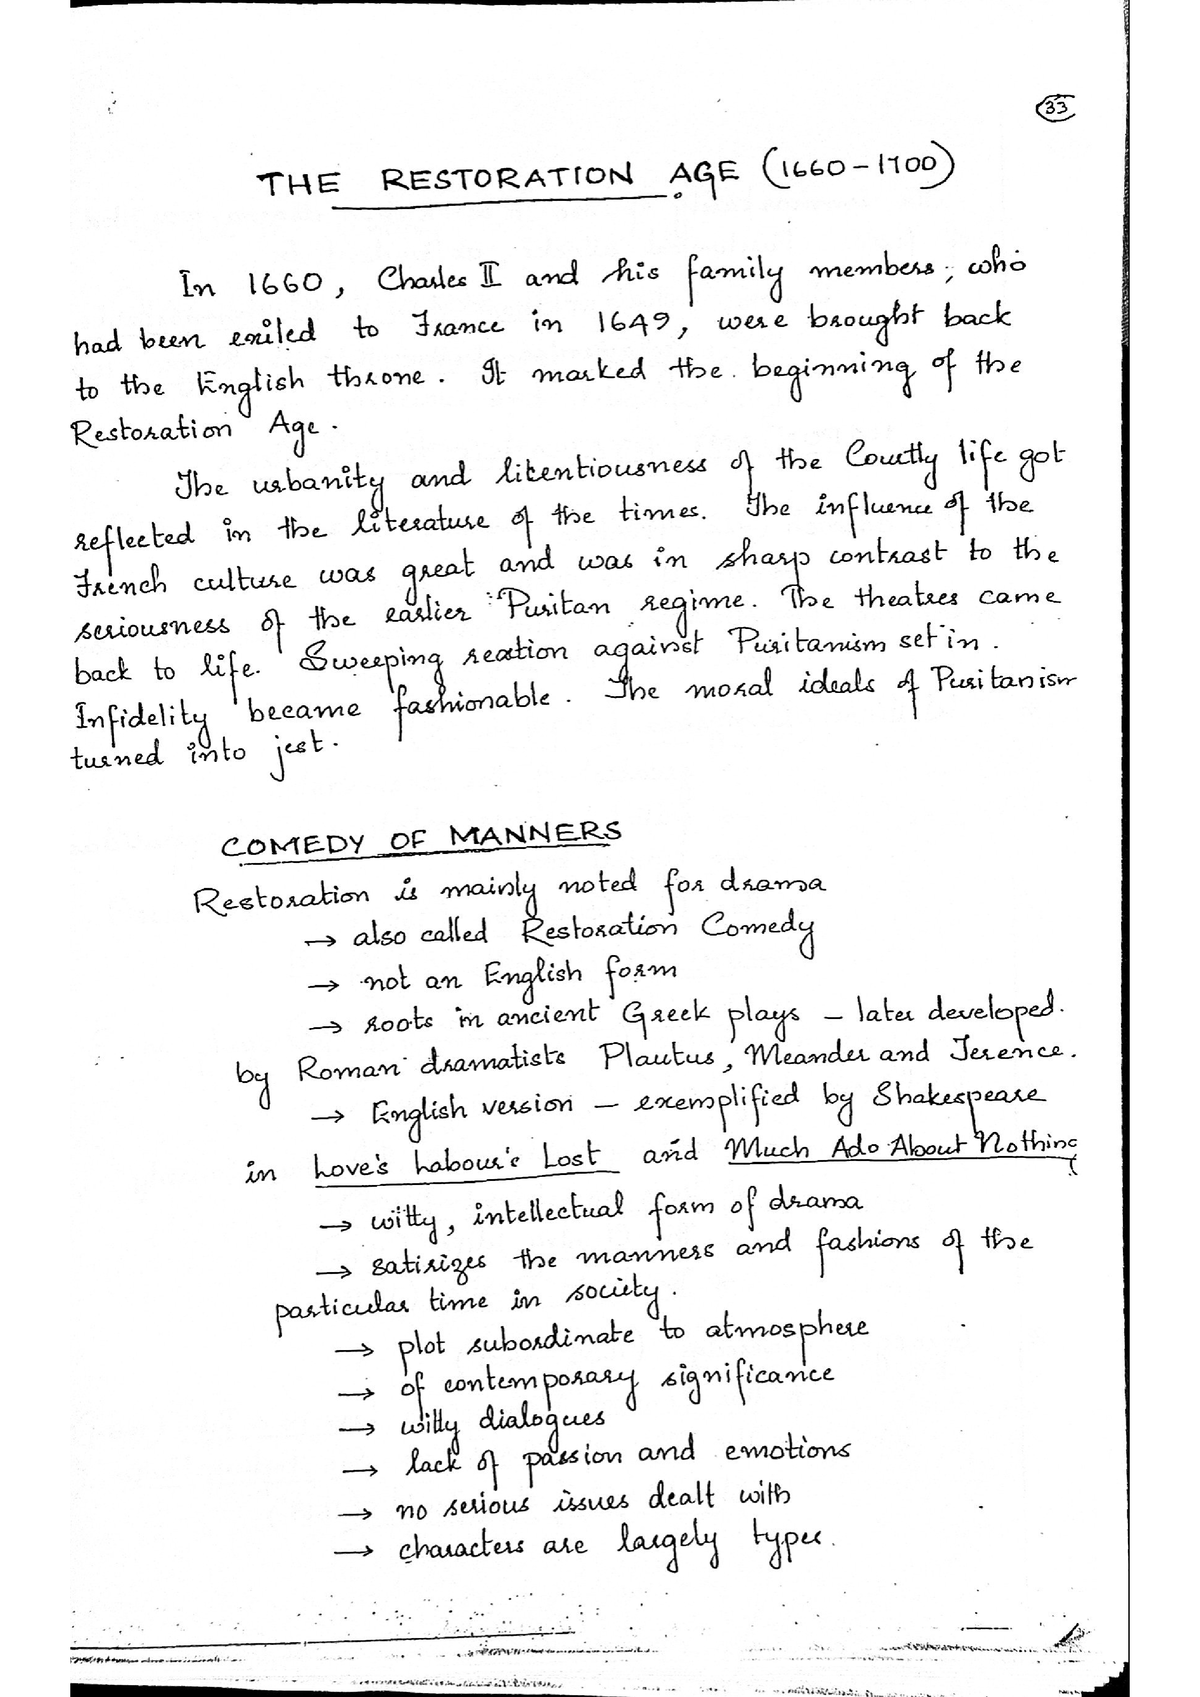 33
THE RESTORATION AGE (1660-1700)
In 1660, Charles II and his family members, who
had been exiled to France in 1649, were brought back
to the English throne. It marked the beginning of the
Restoration Age.
The urbanity and litentiousness of the Courtly life got
reflected in the literature of the times. The influence of the
French culture was great and was in sharp contrast to the
seriousness of the earlier Puritan regime. The theatres came
back to life. Sweeping reaction against Puritanism set in.
Infidelity became fashionable. The moral ideals of Puritanism
turned into jest.
COMEDY OF MANNERS
Restoration is mainly noted for drama
→ also called Restoration Comedy
→ not an English form
→ roots in ancient Greek plays - later developed.
by Roman dramatists Plautus, Meander and Terence.
→ English version - exemplified by Shakespeare
in Love's Labour's Lost and Much Ado About Nothing
→ witty, intellectual form of drama
→ satirizes the manners and fashions of the
particular time in society.
→ plot subordinate to atmosphere
→ of contemporary significance
→ witty dialogues
→ lack of passion and emotions
→ no serious issues dealt with
→ characters are largely types.